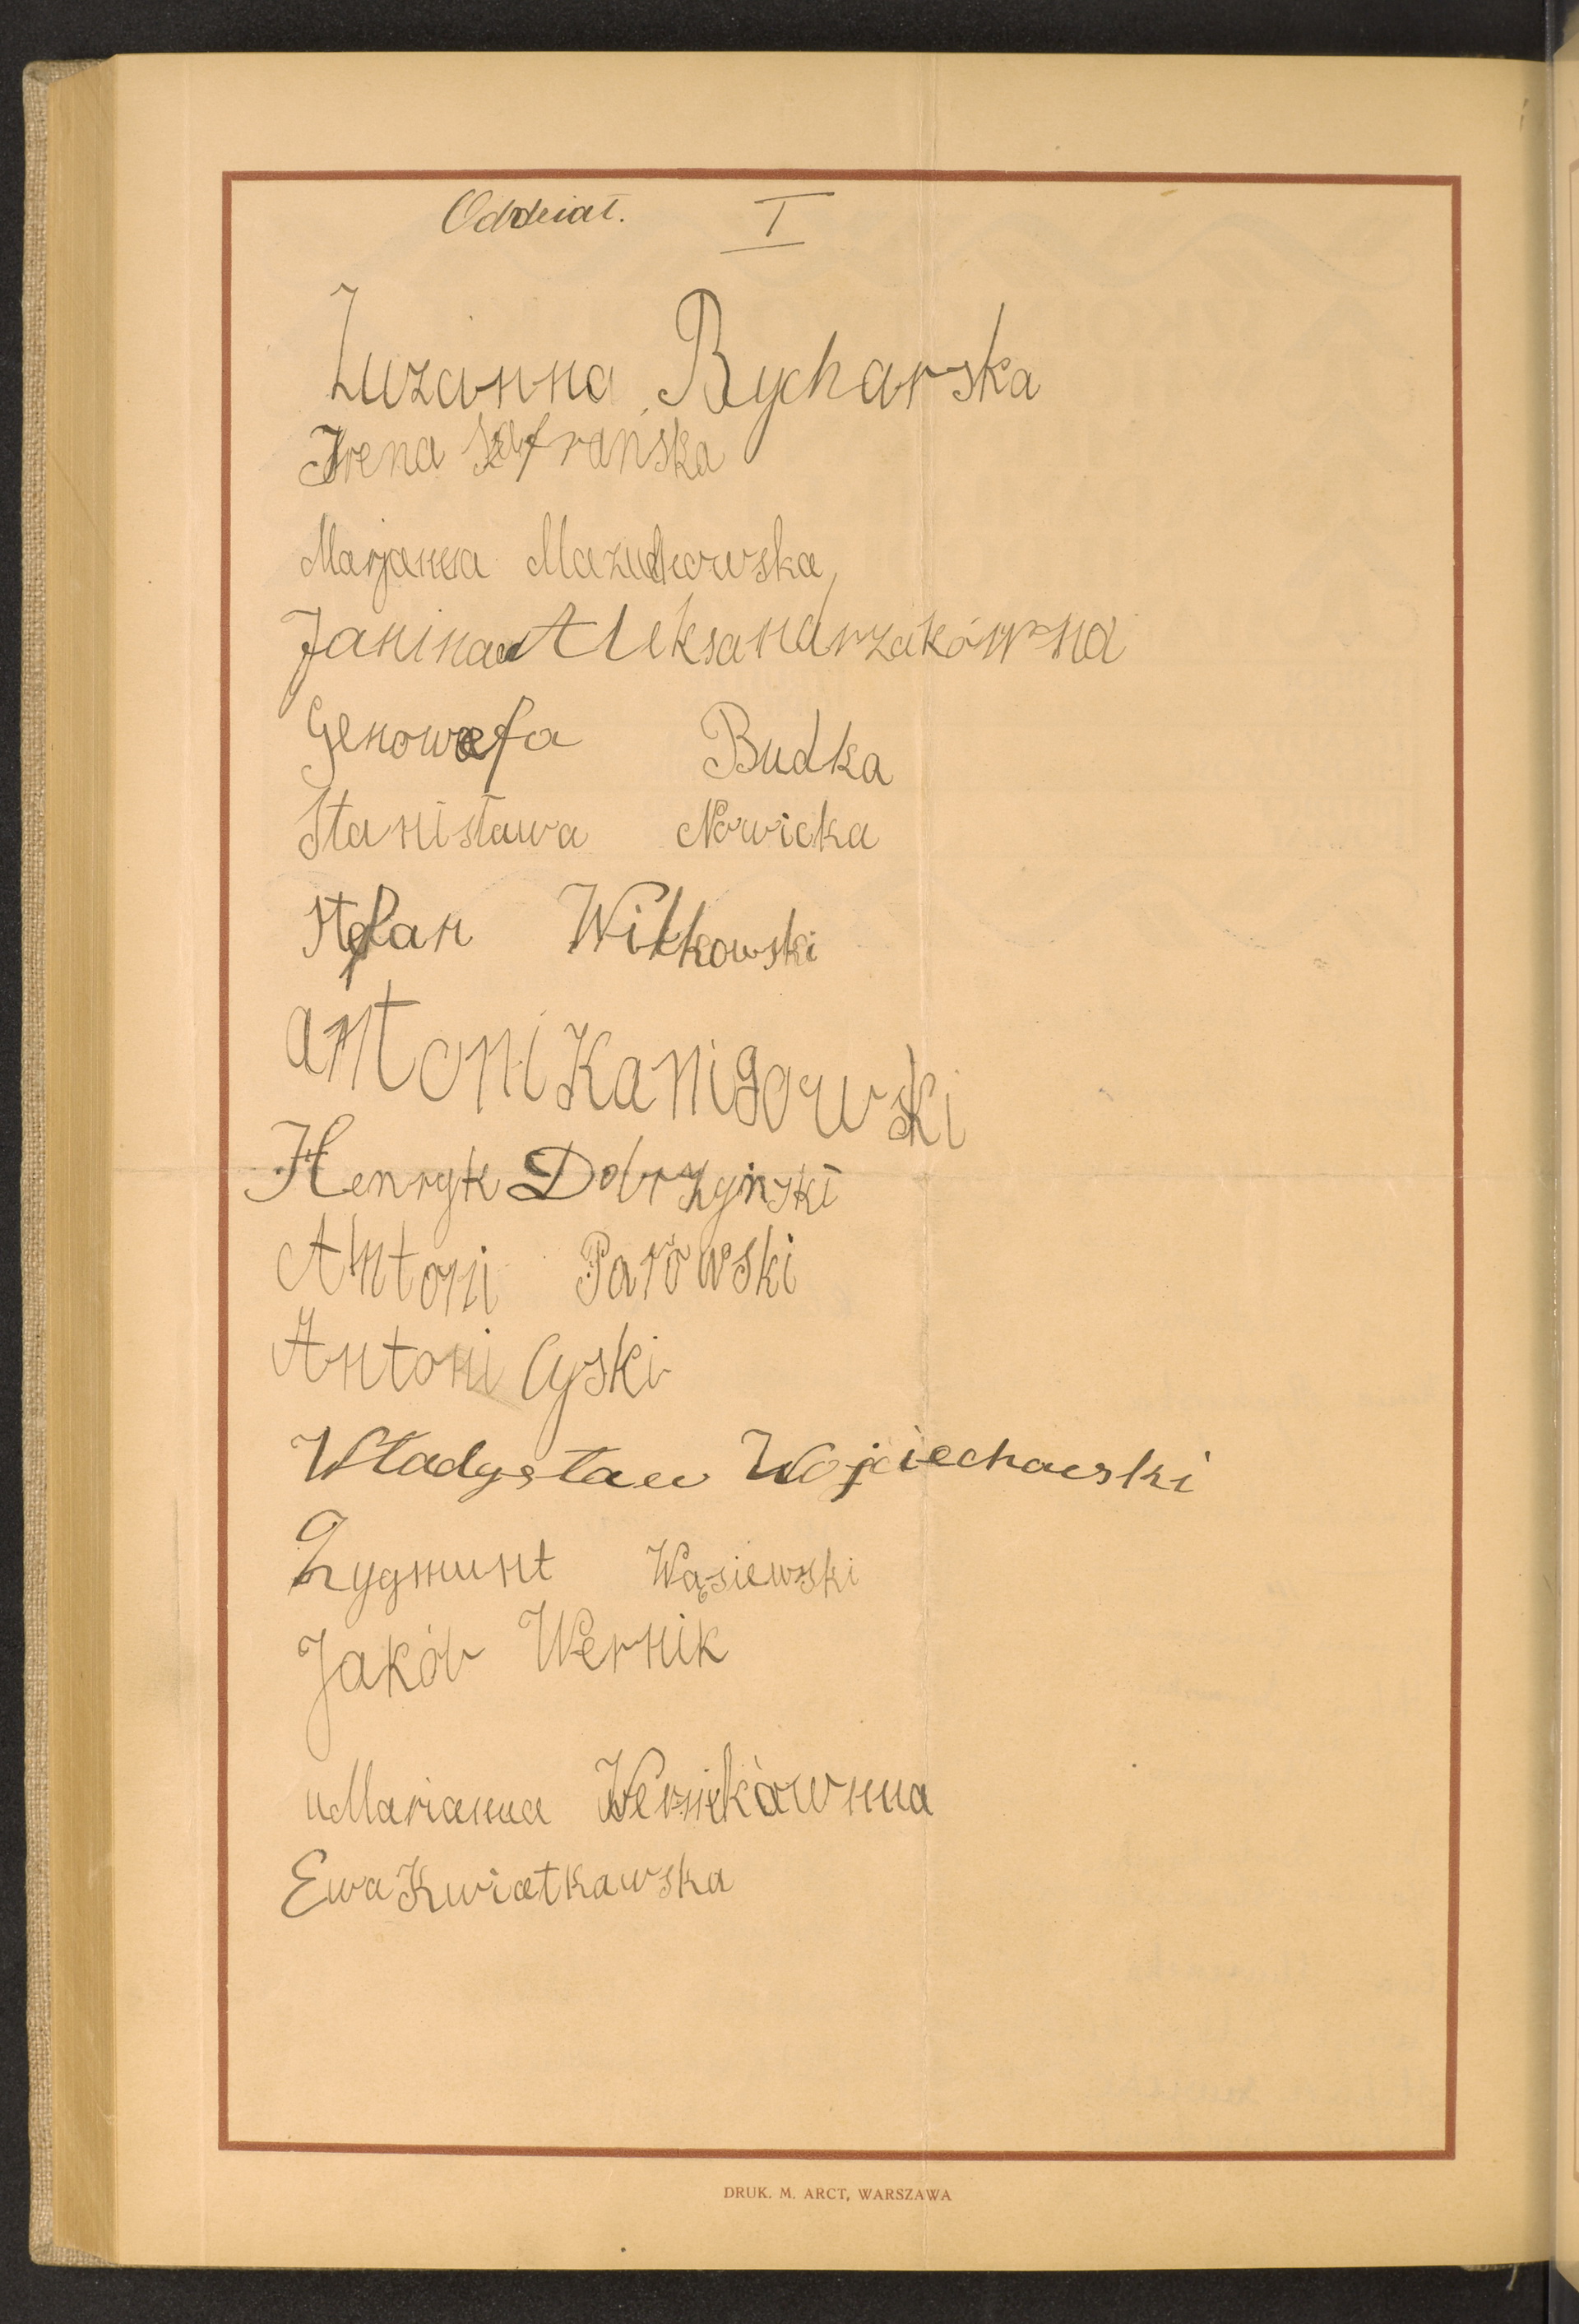 Oddział. I
Zuzanna Rycharska
Irena Szafrańska
Marjanna Mazuchowska
Janina Aleksandrzakówna
Genowefa Budka
Stanisława Nowicka
Stefan Witkowski
antoni Kanigowski
Henryk Dobrzyński
Antoni Parowski
Antoni Cyski
Władysław Wojciechowski
Zygmunt Wąsiewski
Jakób Wernik
Marianna Wernikówna
Ewa Kwiatkawska
DRUK. M. ARCT, WARSZAWA